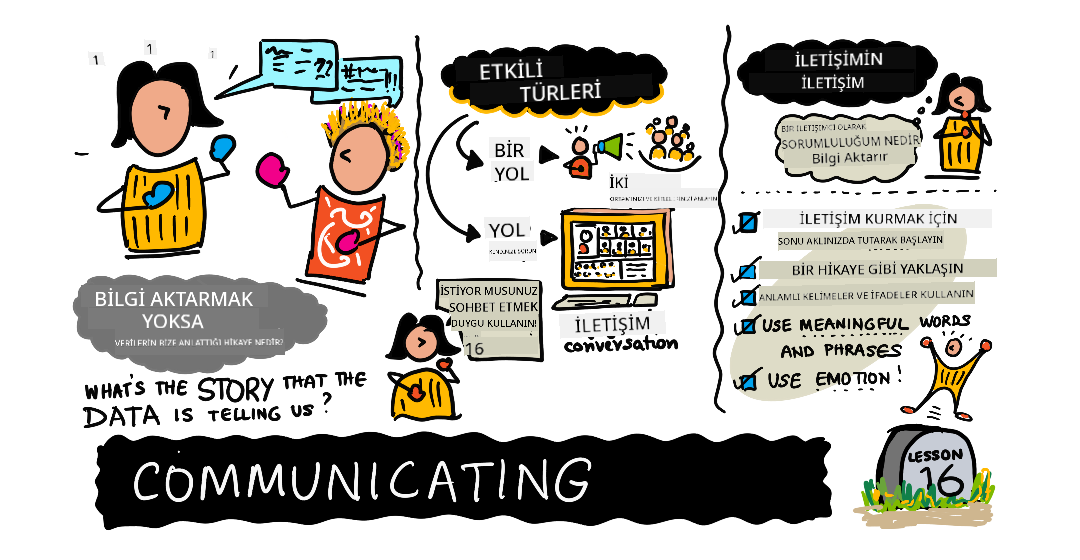 1
1
1
BİLGİ AKTARMAK
YOKSA
VERİLERİN BİZE ANLATTIĞI HİKAYE NEDİR?
WHAT'S THE STORY THAT THE
DATA IS TELLING US?
ETKİLİ
TÜRLERİ
BİR
YOL
İKİ
YOL
İSTİYOR MUSUNUZ
SOHBET ETMEK
DUYGU KULLANIN!
16
İLETİŞİM
conversation
İLETİŞİMİN
İLETİŞİM
BİR İLETİŞİMCİ OLARAK
SORUMLULUĞUM NEDİR
Bilgi Aktarır
İLETİŞİM KURMAK İÇİN
SONU AKLINIZDA TUTARAK BAŞLAYIN
BİR HİKAYE GİBİ YAKLAŞIN
ANLAMLI KELİMELER VE İFADELER KULLANIN
USE MEANINGFUL WORDS
AND PHRASES
USE EMOTION!
COMMUNICATING
LESSON
16